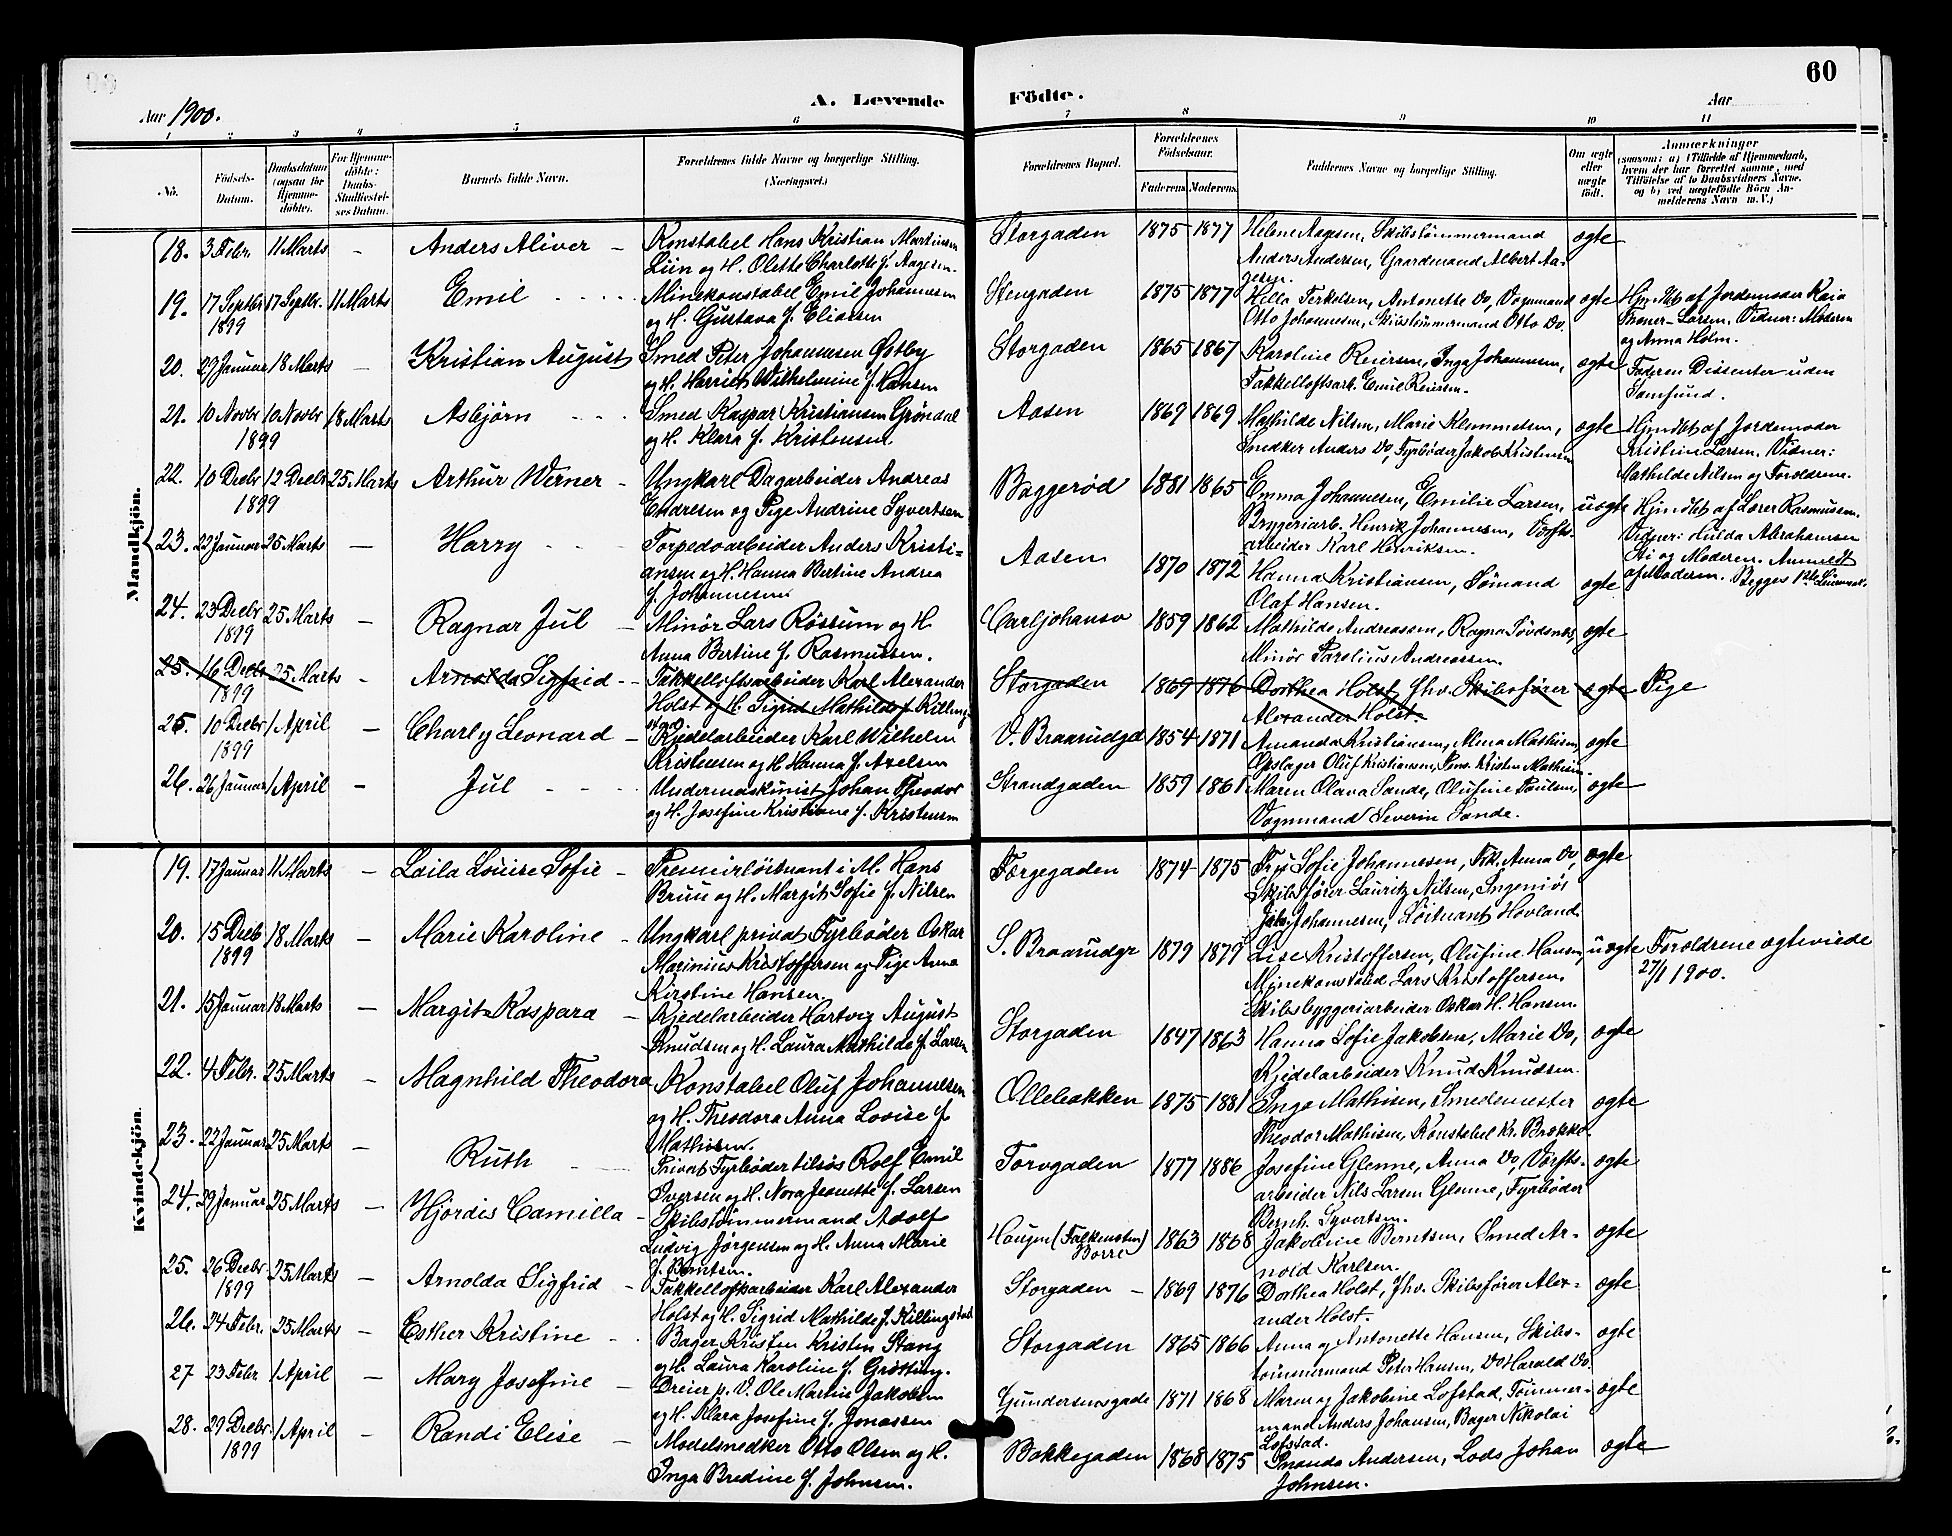 60
Aar 1900.
A. Levende Födte.
Aar
1 2 3 4 5 6 7 8 9 10 11
No.
Födsels-Datum.
Daabsdatum (ogsaa for Hjemme-döbte).
For Hjemme-döbte: Daabs-Stadfæstel-ses Datum.
Barnets fulde Navn.
Forældrenes fulde Navne og borgerlige Stilling. (Næringsvei.)
Forældrenes Bopæl.
Forældrenes Födselsaar.
Faderens Moderens.
Faddernes Navne og borgerlige Stilling.
Om ægte eller uægte födt.
Anmærkninger (saasom: a) i Tilfælde af Hjemmedaab, hvem der har forrettet samme, med Tilföielse af to Daabsvidners Navne, og b) ved uægtefödte Börn An-melderens Navn m.V.)
Mandkjön.
18. 3 Febr. 11 Marts - Anders Aliver - Konstabel Hans Kristian Martinsen
Lien og H. Olette Charlotte f. Aagesen. Storgaden 1875 1877 Helene Aagesen, Skibstømmermand
Anders Andersen, Gaardmand Albert Aa-
gesen. ægte
19. 17 Septbr 1899 17 Septbr. 11 Marts Emil Minekonstabel Emil Johannesen
og H. Gustava f. Eliassen Stengaden 1875 1877 Hilla Terkelsen, Antonette Do, Vognmand
Otto Johannesen, Skibstømmermand Otto Do. ægte Hjmdbt af Jordemoder Kaia
Thoner-Larsen. Vidner: Moderen
og Anna Holm.
20. 29 Januar 18 Marts - Kristian August Smed Peter Johannesen Østby
og H. Harriet Wilhelmine f. Hansen Storgaden 1865 1867 Karoline Reiersen, Inga Johannesen,
Takkelloftsarb. Emil Reiersen. ægte Faderen Dissenter uden
Samfund.
21. 10 Novbr 1899 10 Novbr 18 Marts Asbjörn Smed Kaspar Kristiansen Gröndal
og H. Klara f. Kristensen Aasen 1869 1869 Mathilde Nilsen, Marie Klemmetsen,
Snedker Anders Do, Fyrbøder Jakob Kristensen ægte Hjmdbt af Jordemoder
Kristine Larsen. Vidner:
Mathilde Nilsen og Forældrene.
22. 10 Decbr 1899 12 Decbr 25 Marts Arthur Werner - Ungkarl Dagarbeider Andreas
Endresen og Pige Andrine Syvertsen Baggerød 1881 1865 Emma Johannesen, Emilie Larsen,
Bryggeriarb. Henrik Johannesen, Værfts-
arbeider Karl Henriksen. uægte Hjmdbt af Lærer Rasmussen.
Vidner: Hulda Abrahamsen
Sti og Moderen. Anmeldt
af Moderen. Begges 1ste Leiermaal.
23. 22 Januar 25 Marts - Harry Torpedoarbeider Anders Kristi-
ansen og H. Hanna Bertine Andrea
f. Johannesen Aasen 1870 1872 Hanna Kristiansen, Sømand
Olaf Hansen. ægte
24. 23 Decbr 1899 25 Marts - Ragnar Jul - Minör Lars Rössum og H.
Anna Bertine f. Rasmussen. Carljohansv 1859 1862 Mathilde Andreassen, Ragna Tovdsnes,
Minör Parelius Andreassen ægte
25. 16 Decbr 1899 25 Marts - Arnolda Sigfrid - Takkelloftsarbeider Karl Alexander
Holst og H. Sigrid Mathilde f. Killing-
stad Storgaden 1869 1876 Dorthea Holst, fhv. Skibsfører
Alexander Holst. ægte Pige
25. 10 Decbr 1899 1 April - Charly Leonard - Kjedelarbeider Karl Wilhelm
Kristensen og H. Hanna f. Axelsen V. Braarudgd 1854 1871 Amanda Kristiansen, Alma Mathisen,
Opslager Oluf Kristiansen, Kristen Mathisen. ægte
26. 26 Januar 1 April - Jul Undermaskinist Johan Theodor
og H. Josefine Kristiane f. Kristensen Strandgaden 1859 1861 Maren Olava Sande, Olufine Paulsen,
Vognmand Severin Sande. ægte
Kvindekjön.
19. 17 Januar 11 Marts - Laila Louise Sofie - Premierlöitnant i M. Hans
Bruu og H. Margit Sofie f. Nilsen Færgegaden 1874 1875 Frue Sofie Johannesen, Frk. Anna Do,
Skibsfører Lauritz Nilsen, Ingeniør
Johannesen, Löitnant Hovland. ægte
20. 15 Decb 1899 18 Marts - Marie Karoline - Ungkarl privat Fyrbøder Oskar
Marinius Kristoffersen og Pige Anna
Kirstine Hansen. S. Braarudgr 1879 1879 Lise Kristoffersen, Olufine Hansen,
Minekonstabel Lars Kristoffersen,
Skibsbyggeriarbeider Oskar H. Hansen. uægte Forældrene ægteviede
27/1 1900.
21. 15 Januar 18 Marts - Margit Kaspara - Kjedelarbeider Hartvig August
Knudsen og H. Laura Mathilde f. Larsen Storgaden 1847 1863 Hanna Sofie Jakobsen, Marie Do,
Kjedelarbeider Knud Knudsen. ægte
22. 4 Febr. 25 Marts - Magnhild Theodora Konstabel Oluf Johannesen
og H. Theodora Anna Lovise f.
Mathisen. Ollebakken 1875 1881 Inga Mathisen, Smedemester
Theodor Mathisen, Konstabel Kr. Brække. ægte
23. 22 Januar 25 Marts - Ruth Privat Fyrbøder tilsös Rolf Emil
Iversen og H. Nora Jeanette f. Larsen Torvgaden 1877 1886 Josefine Glenne, Anna Do, Værfts-
arbeider Nils Larsen Glenne, Fyrbøder
Bernh. Syvertsen. ægte
24. 29 Januar 25 Marts - Hjördis Camilla - Skibstömmermand Adolf
Ludvig Jørgensen og H. Anna Marie
f. Berntsen. Haugen (Falkensten) Borre 1863 1868 Jakobine Berntsen, Smed Ar-
nold Karlsen. ægte
25. 26 Decbr. 1899 25 Marts - Arnolda Sigfrid - Takkelloftsarbeider Karl Alexander
Holst og H. Sigrid Mathilde f. Killingstad Storgaden - 1869 1876 Dorthea Holst, fhv. Skibsfører Alex-
ander Holst. ægte
26. 24 Febr. 25 Marts - Esther Kristine - Bager Kristen Kristen Stang
og H. Laura Karoline f. Grötting. Storgaden 1865 1866 Anna og Antonette Hansen, Skibs-
tömmermand Peter Hansen, Do Harald Do. ægte
27 23 Febr. 1 April - Mary Josefine - Dreier p. V. Ole Martin Jakobsen
og H. Klara Josefine f. Jonassen Gundersensgade 1871 1868 Maren og Jakobine Lofstad, Tömmer-
mand Anders Johansen, Bager Nikolai
Lofstad. ægte
28. 29 Decbr. 1899 1 April - Randi Elise - Modelsnedker Otto Olsen og H.
Inga Bredine f. Johnsen. Bakkegaden 1868 1875 Ananda Andersen, Lods Johan
Johnsen. ægte